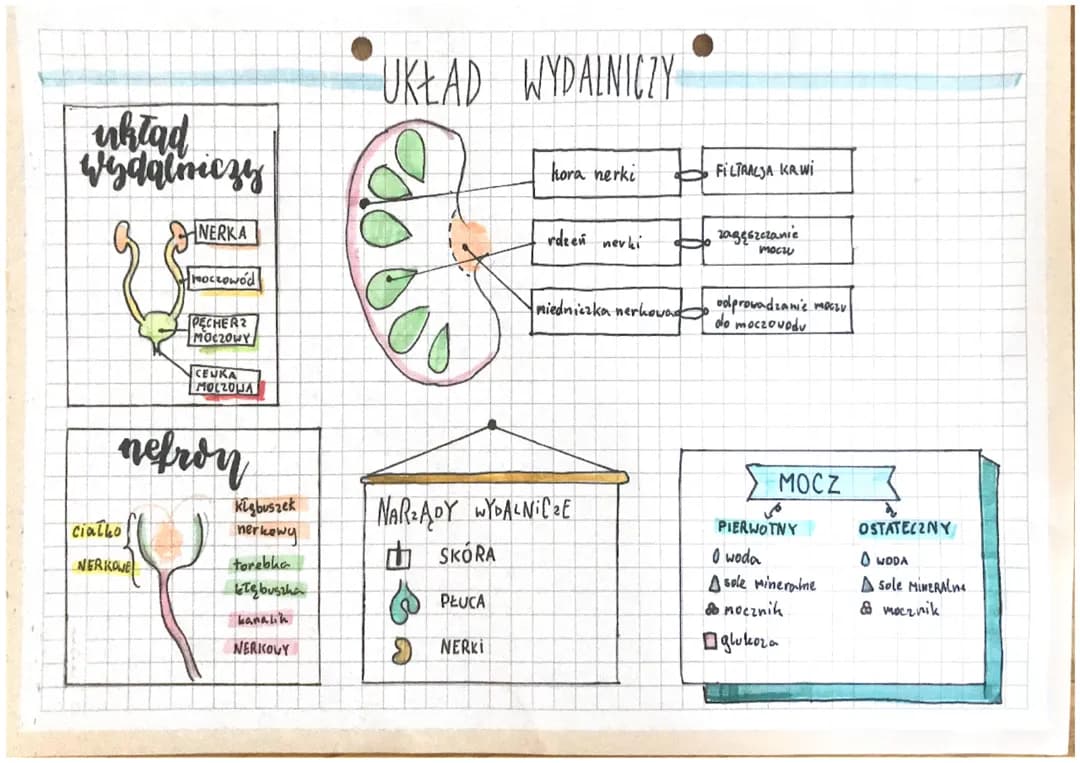 UKŁAD WYDALNICZY
układ
wydalniczy
NERKA
MOCZOWÓD
PĘCHERZ
MOCZOWY
CEWKA
MOCZOWA
kora nerki
FILTRACJA KRWI
rdzeń nerki
zagęszczanie
moczu
miedniczka nerkowa
odprowadzanie moczu
do moczowodu
nefron
ciałko
NERKOWE
kłębuszek
nerkowy
torebka
kłębuszka
kanalik
NERKOWY
NARZĄDY WYDALNICZE
SKÓRA
PŁUCA
NERKI
MOCZ
PIERWOTNY
woda
sole mineralne
mocznik
glukoza
OSTATECZNY
WODA
SOLE MINERALNE
mocznik